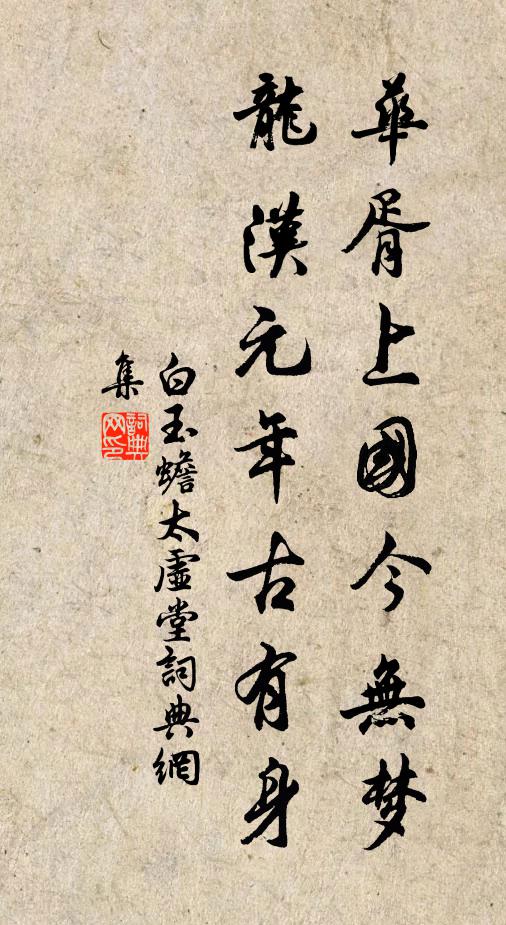 華胥上國今無梦
龍漢元年古有身
白玉蟾太虛堂詞典網
集
詞典網印